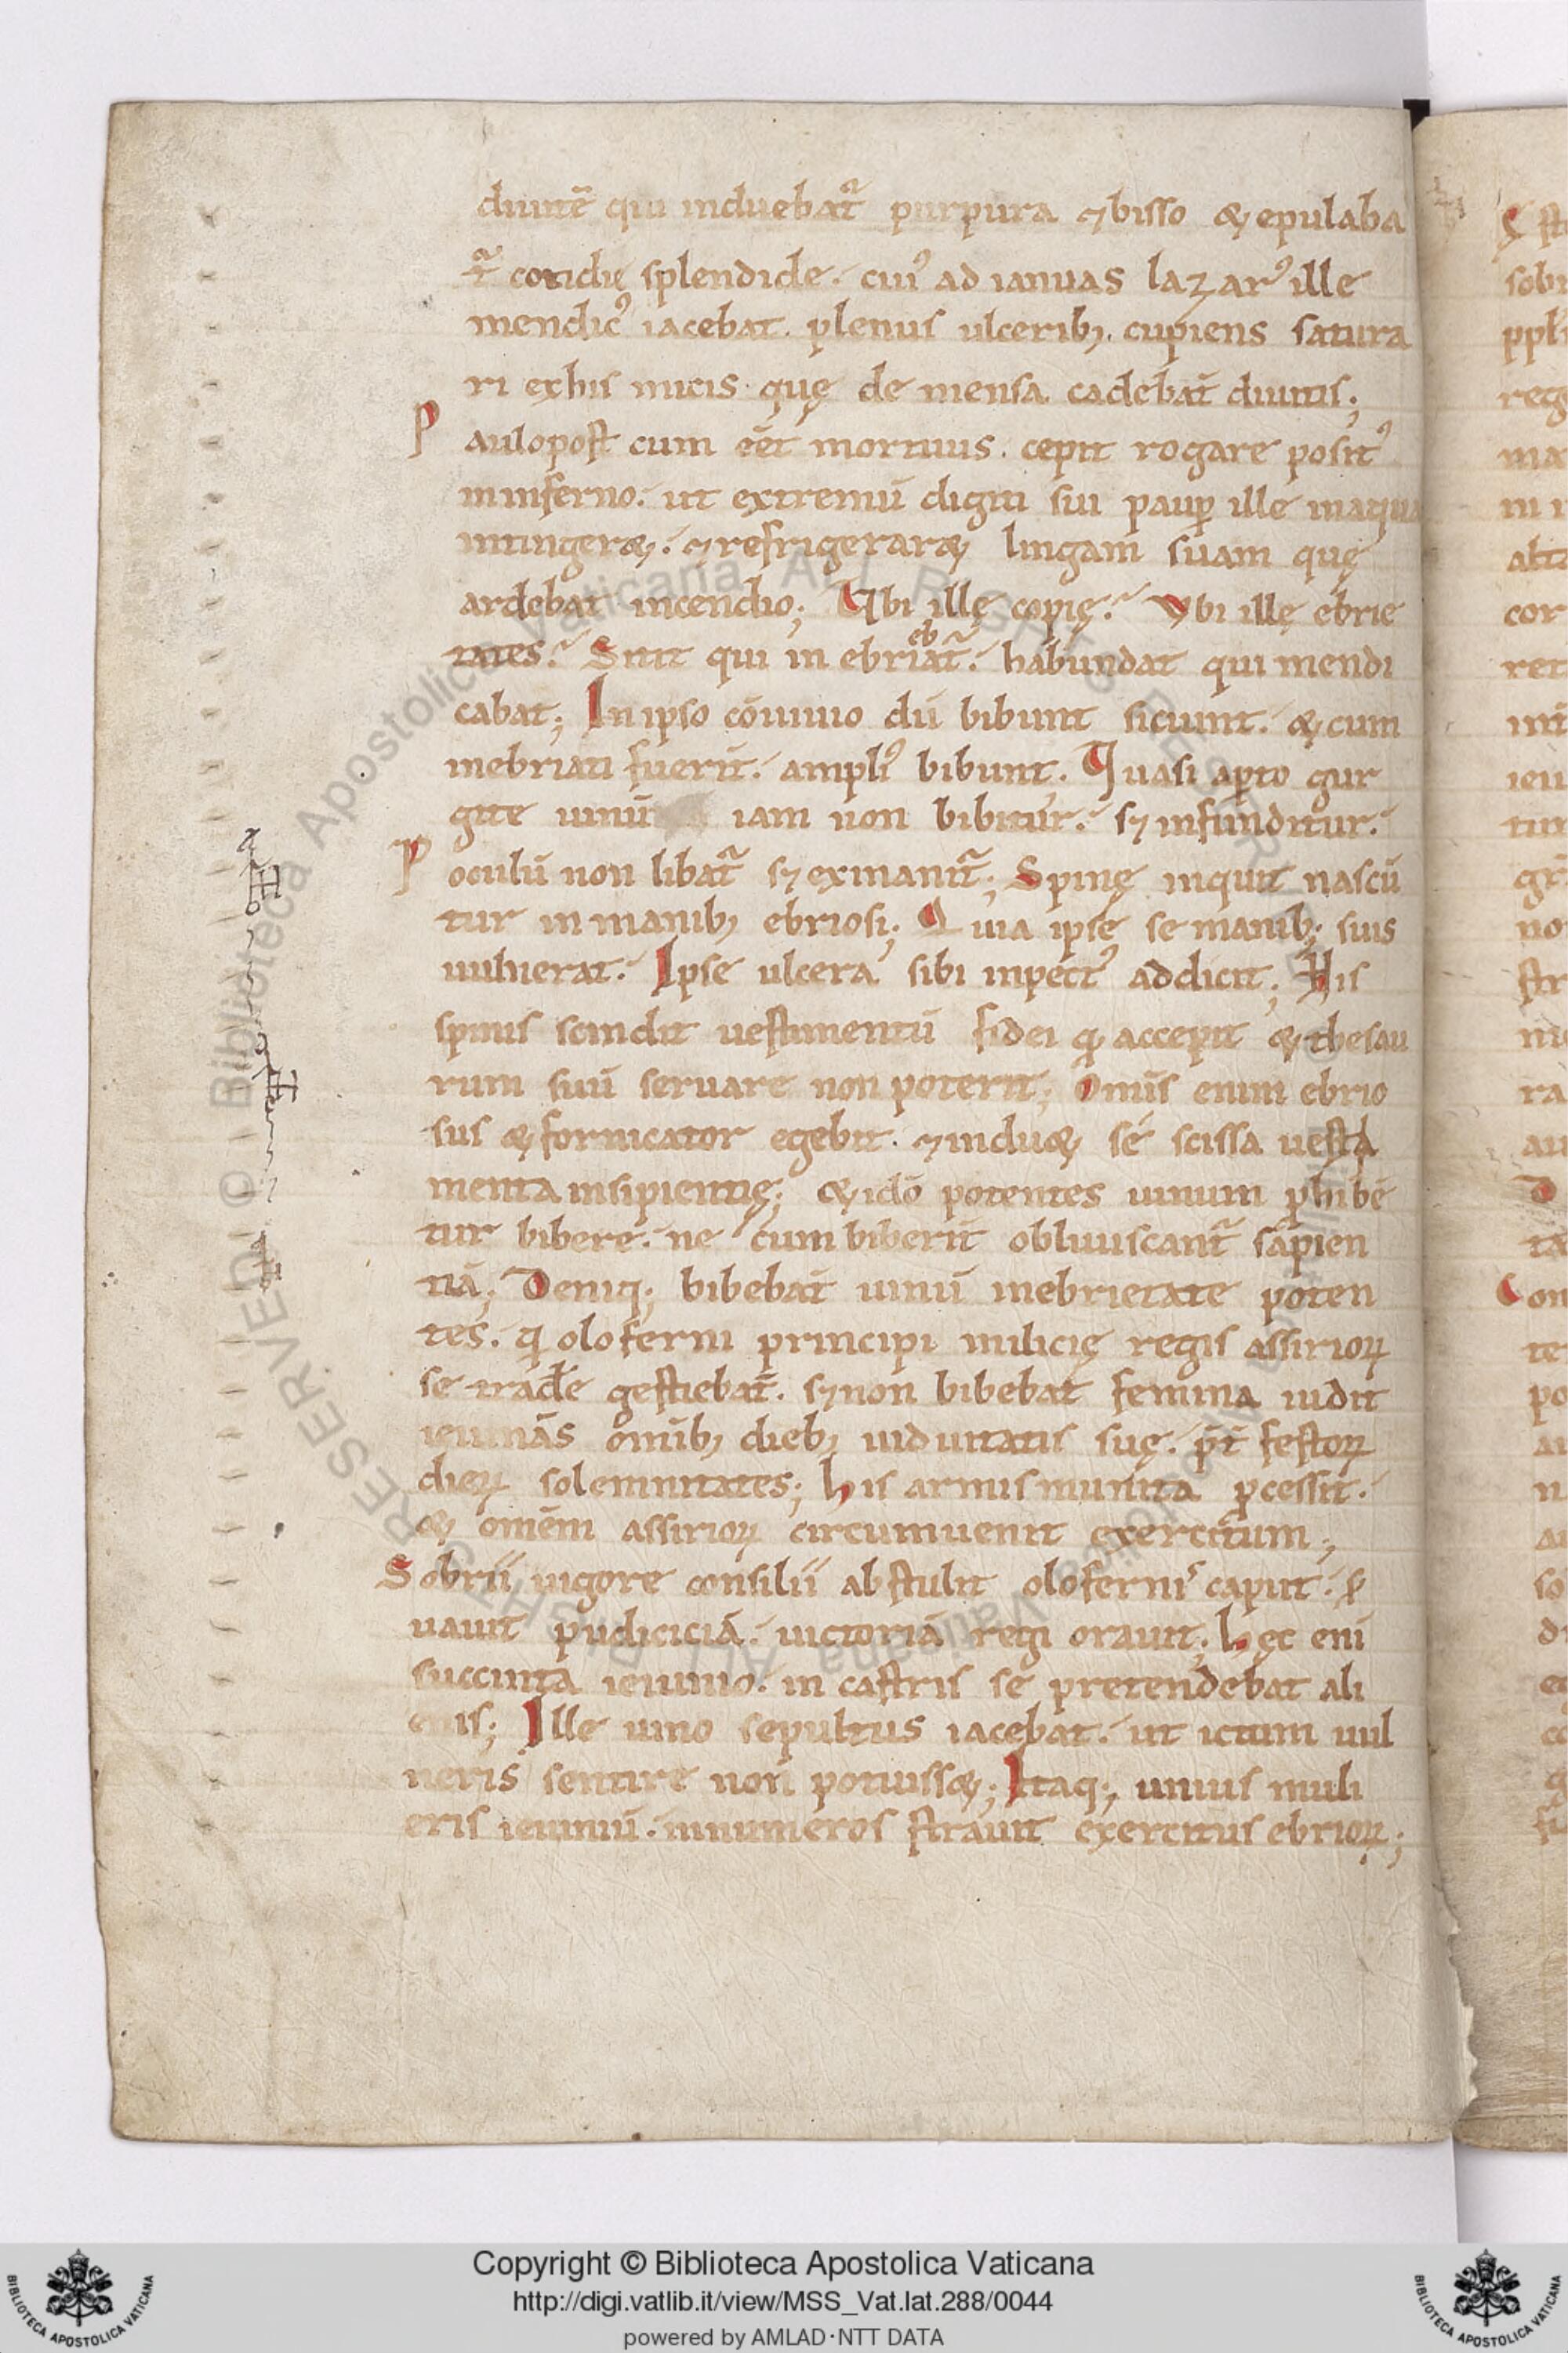 diuitē qui induebat᷑ purpura ⁊ bisso & epulaba
t᷑ cotidię splendide. cuiꝰ ad ianuas lazarꝰ ille
mendicꝰ iacebat. plenus ulceribꝫ. cupiens satura
ri exhis micis quę de mensa cadebat̄ diuitis;
Paulopost cum eēt mortuus. cepit rogare positꝰ
ininferno. ut extremū digiti sui paup̲ ille inaqua
intinger&. ⁊ refrigerar& lingam suam quę
ardebat incendio; Vbi illę copię. Vbi illę ebrie
tates. Sitit qui in ebriebat᷑. habundat qui mendi
cabat; In ipso cōuiuio dū bibunt siciunt. & cum
inebriati fuerīt. ampliꝰ bibunt. Quasi ap̲to gur
gite uinū iam non bibitur. sꝫ infunditur.
Poculū non libat᷑ sꝫ exinanit᷑; Spinę inquit nascū
tur in manibꝫ ebriosi; Quia ipse se manibꝫ suis
uulnerat. Ipse ulcera sibi inpēitꝰ addicit; His
spinis scindit uestimentū fidei ꝙ accepit & thesau
rum suū seruare non poterit; Omīs enim ebrio
sus & fornicator egebit. ⁊ indu& se scissa uesta
menta insipientię; & idō potentes uinum ꝓhibē
tur bibere. ne cum biberīt obliuiscant᷑ sapien
tiā; Deniqꝫ bibebāt uinū inebrietate poten
tes. q̇ oloferni principi milicię regis assirioꝝ
se trađe gestiebāt. sꝫ non bibebat femina iudit
ieiunās omībꝫ diebꝫ uiduitatis suę. p̄t festoꝝ
dieꝝ solemnitates; His armis munita ꝓcessit.
& omēm assirioꝝ circumuenit exercitum;
Sobrii uigore consilii abstulit olofernis caput. s̲
uauit pudiciciā. uictoriā regi orauit; Hęc eni
succinta ieiunio. in castris se pretendebat ali
enis; Ille uino sepultus iacebat. ut ictum uul
neris sentire non potuiss&; Itaqꝫ unius muli
eris ieiuniū. innumeros strauit exercitus ebrioꝝ;
Copyright © Biblioteca Apostolica Vaticana
http://digi.vatlib.it/view/MSS_Vat.lat.288/0044
powered by AMLAD·NTT DATA
BIBLIOTECA APOSTOLICA VATICANA
BIBLIOTECA APOSTOLICA VATICANA